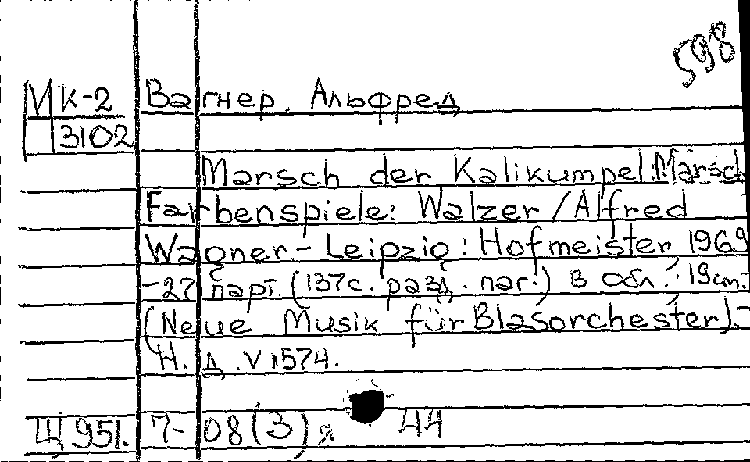 598
МК-2 Вагнер, Альфред
3102
Marsch der Kalikumpel: Marsch
Farbenspiele: Walzer / Alfred
Wagner - Leipzig : Hofmeister, 1969
-27 парт. (137с. разд. паг.) в обл.; 19cm.
(Neue Musik für Blasorchester).-
Н.д. V 1574.
Щ 951. 7- 08(3) я 44